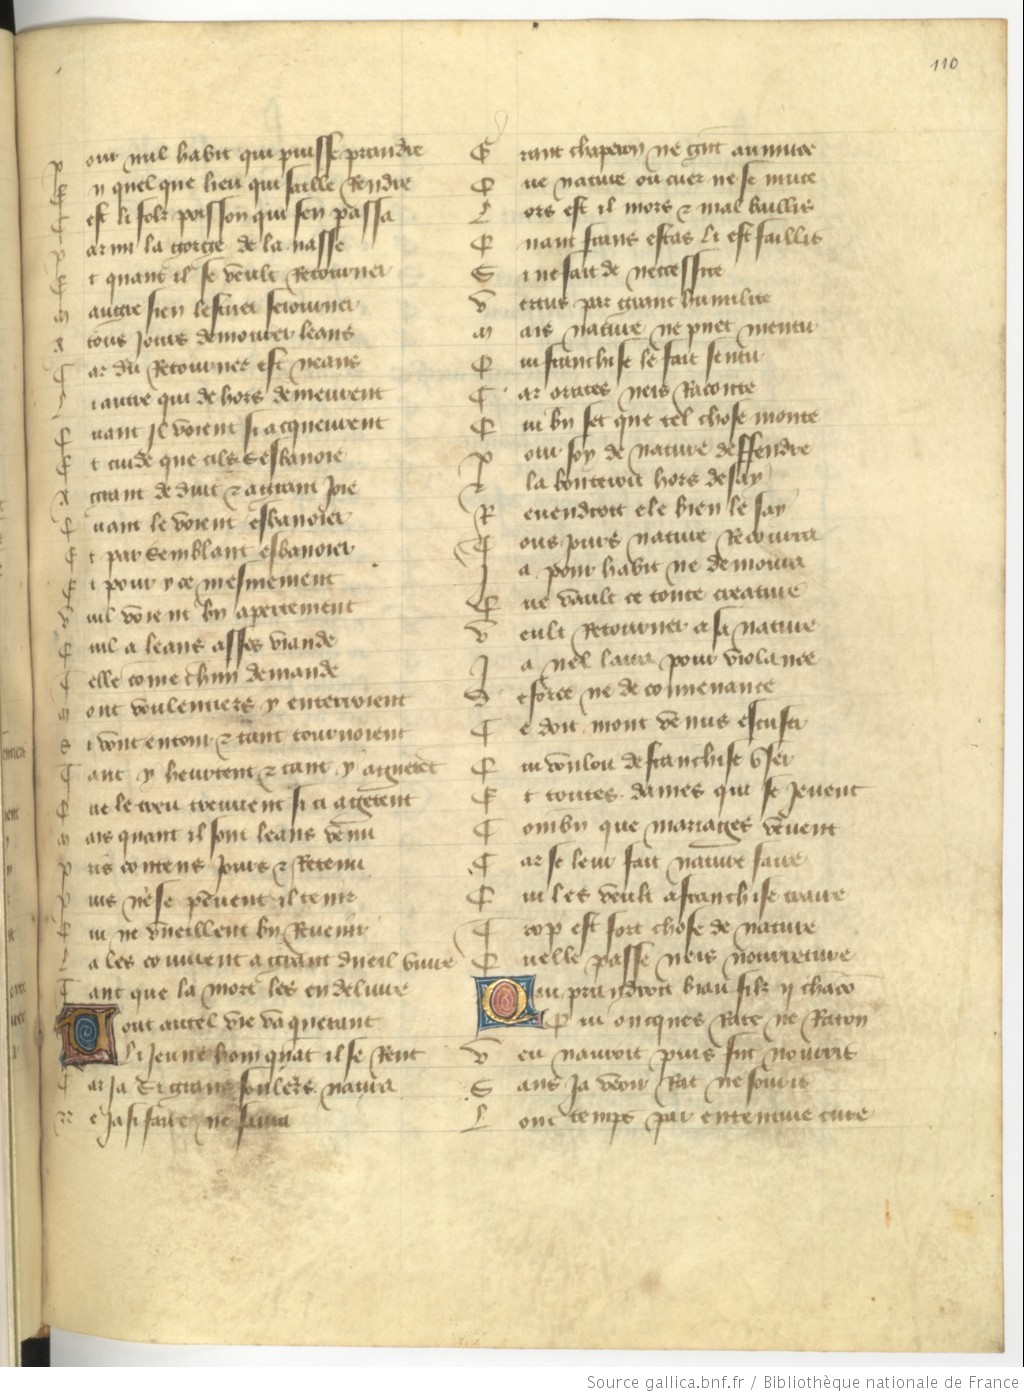 110
Pour nul habit qui puisse prandre
En quel que lieu qui saille Rendre
Cest li folz poisson qui sen passa
Parmi la gorge de la nasse
Et quant il se veult Retourner
Maugre sien lestuet seiourner
A tous Jours demourer leans
Car du Retourner est neans
Li autre qui dehors demeurent
Quant Il voient si acqueurent
Et cuide que cilz Sesbanoie
A grant deduit z a grant Joie
Quant le voient esbanoier
Et par Semblant esbanoier
Et pour y ce mesmement
Quil voient by apertement
Quil a leans asses viande
Celle come chun demande
Mont voulentiers y enterroient
Si vont entour z tant tournoient
Tant y heurtent z tant y aguetet
Que le treu treuvent si ci agetent
Mais quant il sont leans venu
Pris contens Jours z Retenu
Puis ne se pevent il tenir
Quil ne vueillent by Revenir
La les convient a grant dueil vivre
Tant que la mort les en delivre
Tout autel vie va querant
Li Jeune hom quat il se Rent
Car Ja Si grans soulers naura
Ne Ja si faire ne saura
Grant chaperon ne grit aumuce
Que nature ou cuer ne se muce
Lors est il mors z mal baillis
Quant frans estas li est faillis
Si ne fait de necessite
Vertus par grant humilite
Mais nature ne puet mentir
Qui franchise le fait sentir
Car oraces neis Raconte
Qui by set que tel chose monte
Pour soy de nature deffendre
Et la bouteroit hors de say
Revendroit ele bien le say
Tous jours nature Recourra
Ja pour habit ne demoura
Que vault ce toute creature
Veult Retourner a sa nature
Ja nel laira pour violance
De force ne de convenance
Ce doit mont venus escuser
Quil voulou de franchise user
Et toutes dames qui se Jeuent
Comby que mariages veuent
Car se leur fait nature faire
Quil les veult a franchise traire
Trop est fort chose de nature
Quelle passe neis nourreture
Qui prandroit biau filz y chaco
Qui oncques Rate ne Raton
Veu nauroit puis fut nourris
Sans Ja veoir Rat ne souris
Lonc temps par ententive cure
Source gallica.bnf.fr / Bibliothèque nationale de France